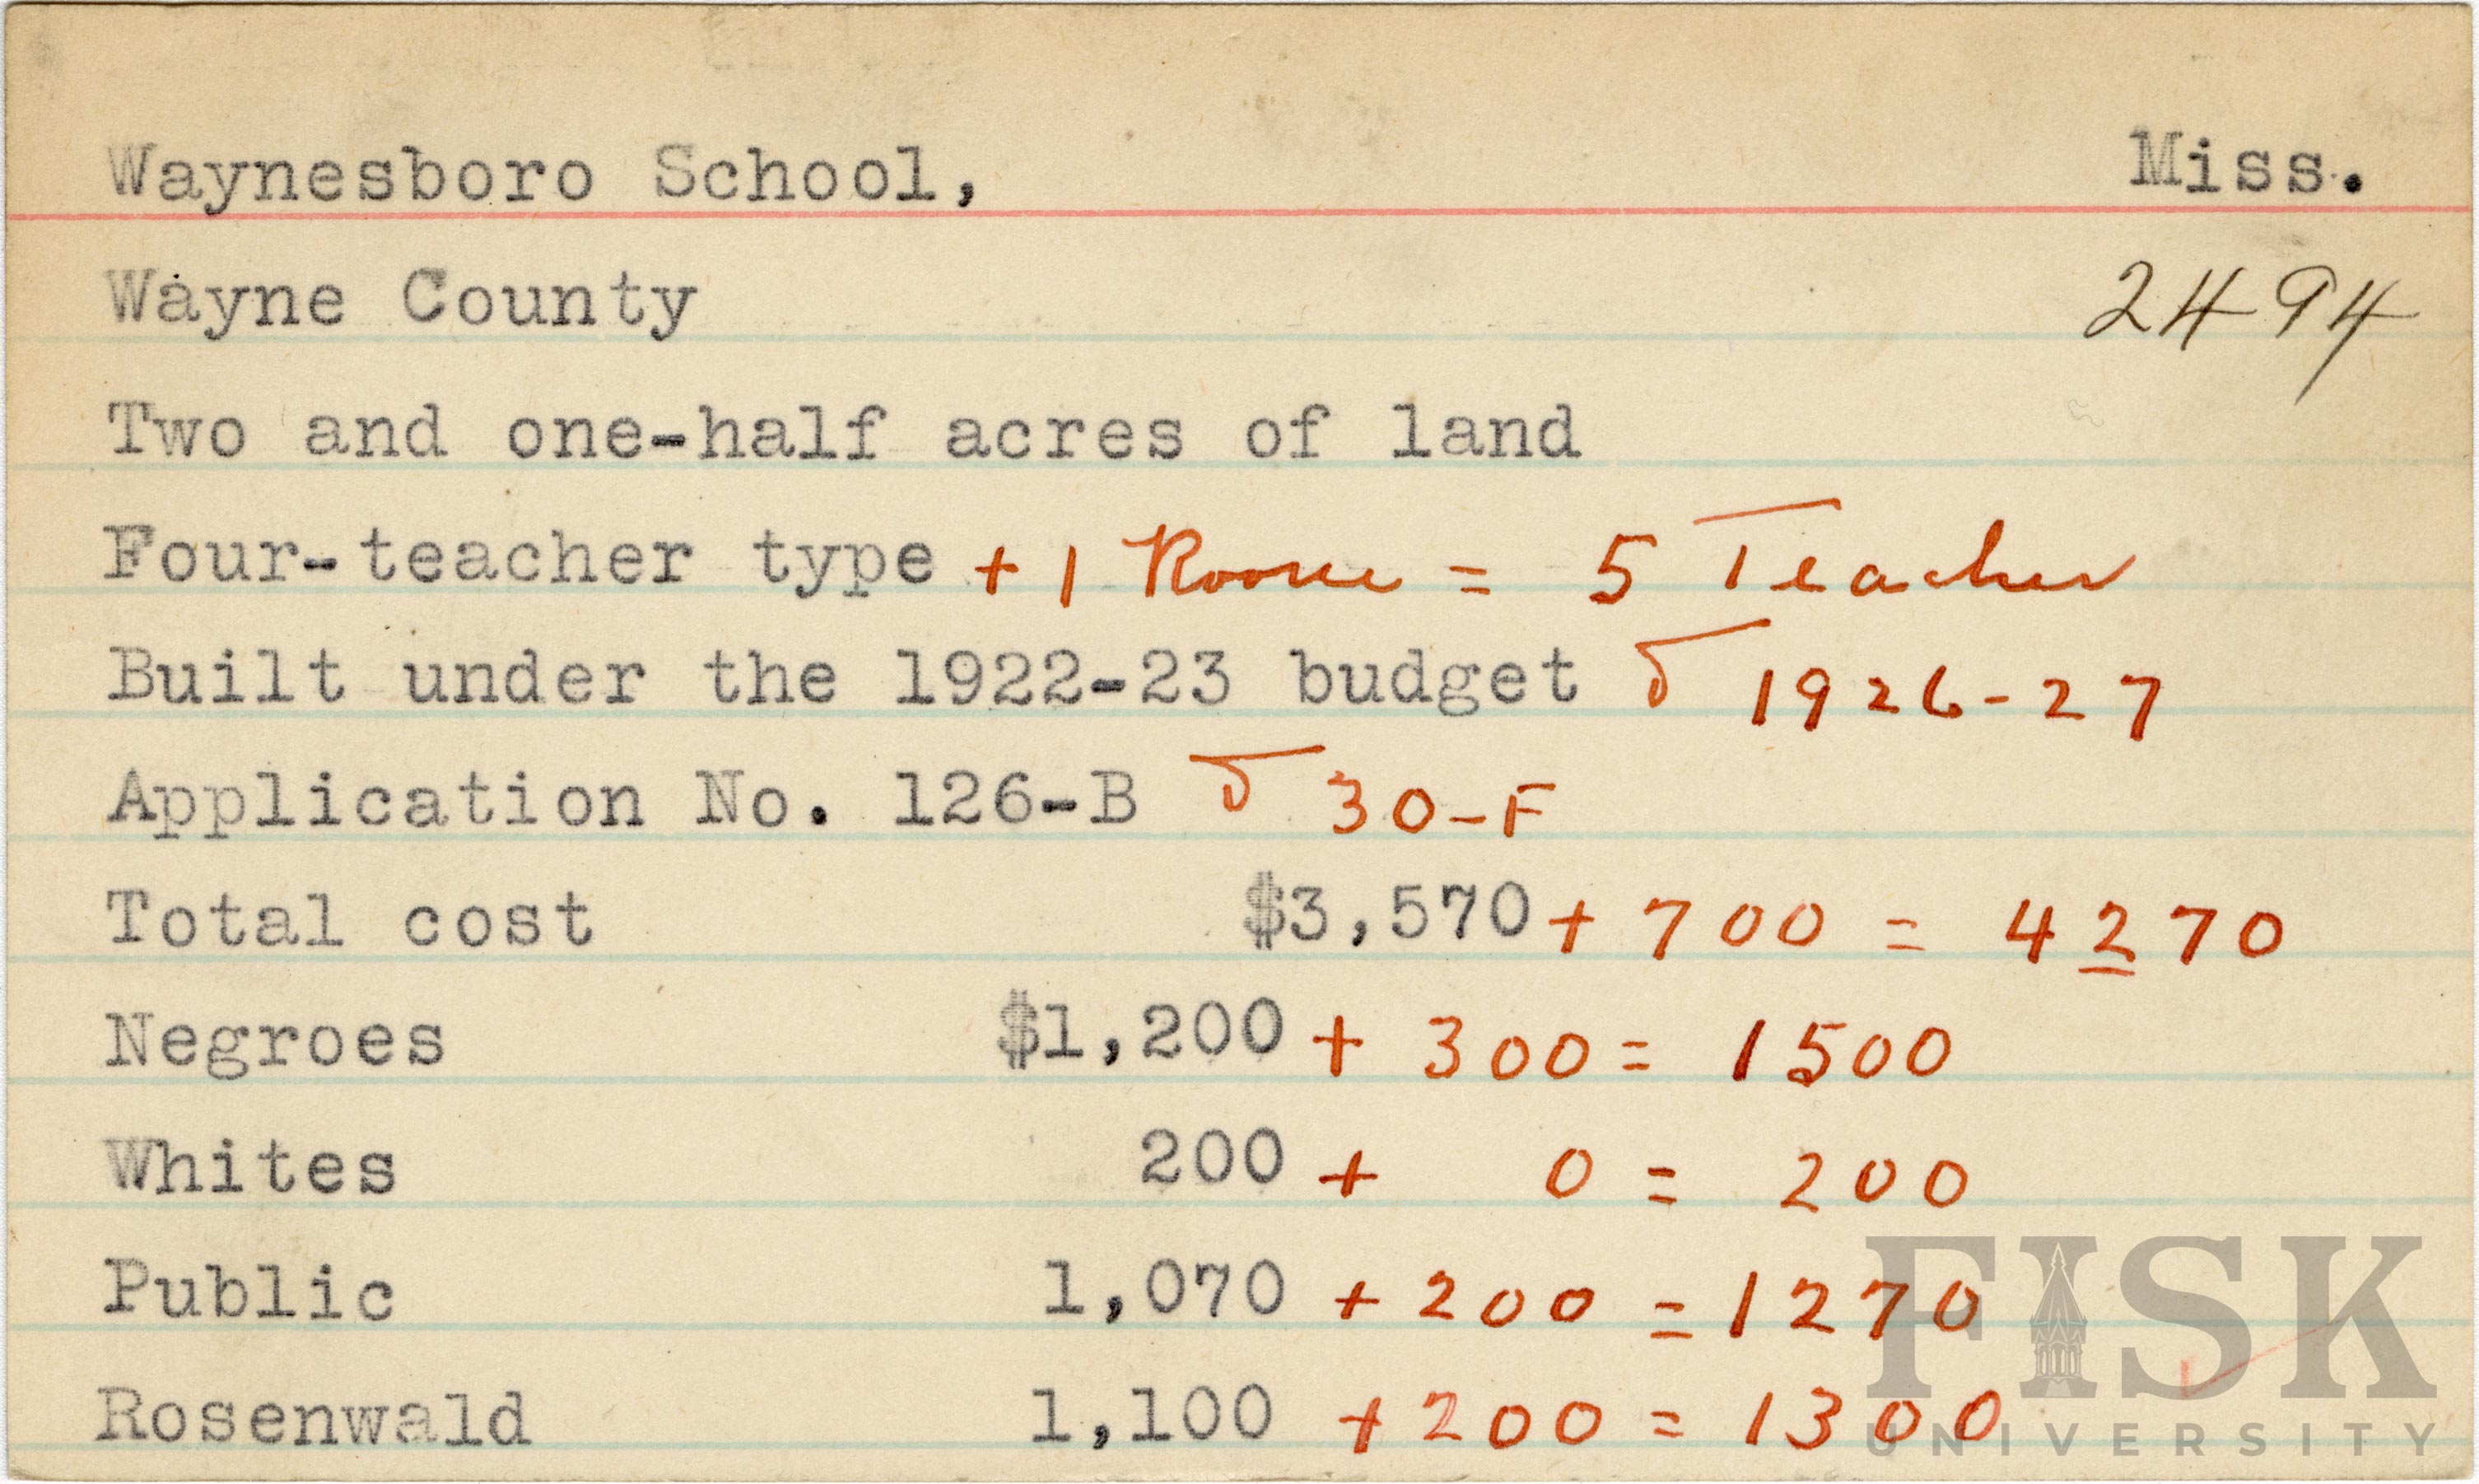 Waynesboro School, Miss.
Wayne County 2494
Two and one-half acres of land
Four-teacher type + 1 Room = 5 Teacher
Built under the 1922-23 budget & 1926-27
Application No. 126-B & 30-F
Total cost $3,570 + 700 = 4270
Negroes $1,200 + 300 = 1500
Whites 200 + 0 = 200
Public 1,070 + 200 = 1270
Rosenwald 1,100 + 200 = 1300
FISK
UNIVERSITY